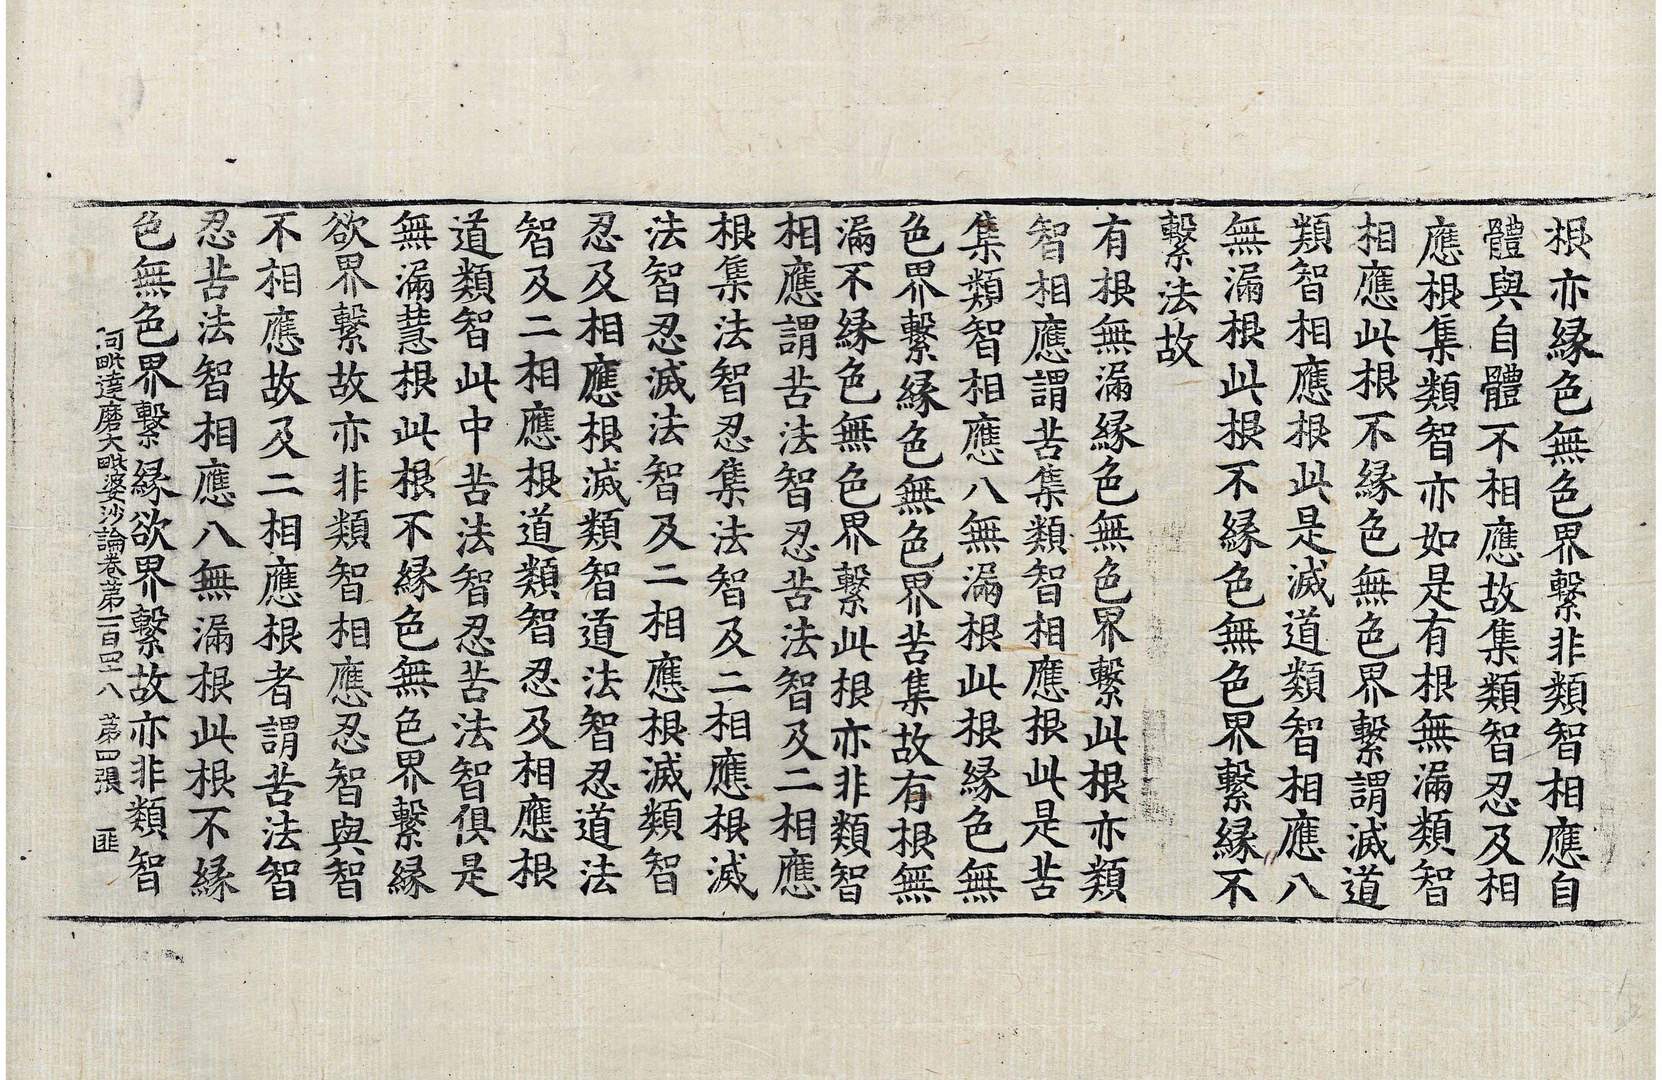 根亦縁色無色界繫非類智相應自
體與自體不相應故集類智忍及相
應根集類智亦如是有根無漏類智
相應此根不縁色無色界繫謂滅道
類智相應根此是滅道類智相應八
無漏根此根不縁色無色界繫縁不
繫法故
有根無漏縁色無色界繫此根亦類
智相應謂苦集類智相應根此是苦
集類智相應八無漏根此根縁色無
色界繫縁色無色界苦集故有根無
漏不縁色無色界繫此根亦非類智
相應謂苦法智忍苦法智及二相應
根集法智忍集法智及二相應根滅
法智忍滅法智及二相應根滅類智
忍及相應根滅類智道法智忍道法
智及二相應根道類智忍及相應根
道類智此中苦法智忍苦法智俱是
無漏慧根此根不縁色無色界繫縁
欲界繫故亦非類智相應忍智與智
不相應故及二相應根者謂苦法智
忍苦法智相應八無漏根此根不縁
色無色界繫縁欲界繫故亦非類智
阿毗達磨大毗婆沙論卷第一百四十八 第四張 匪